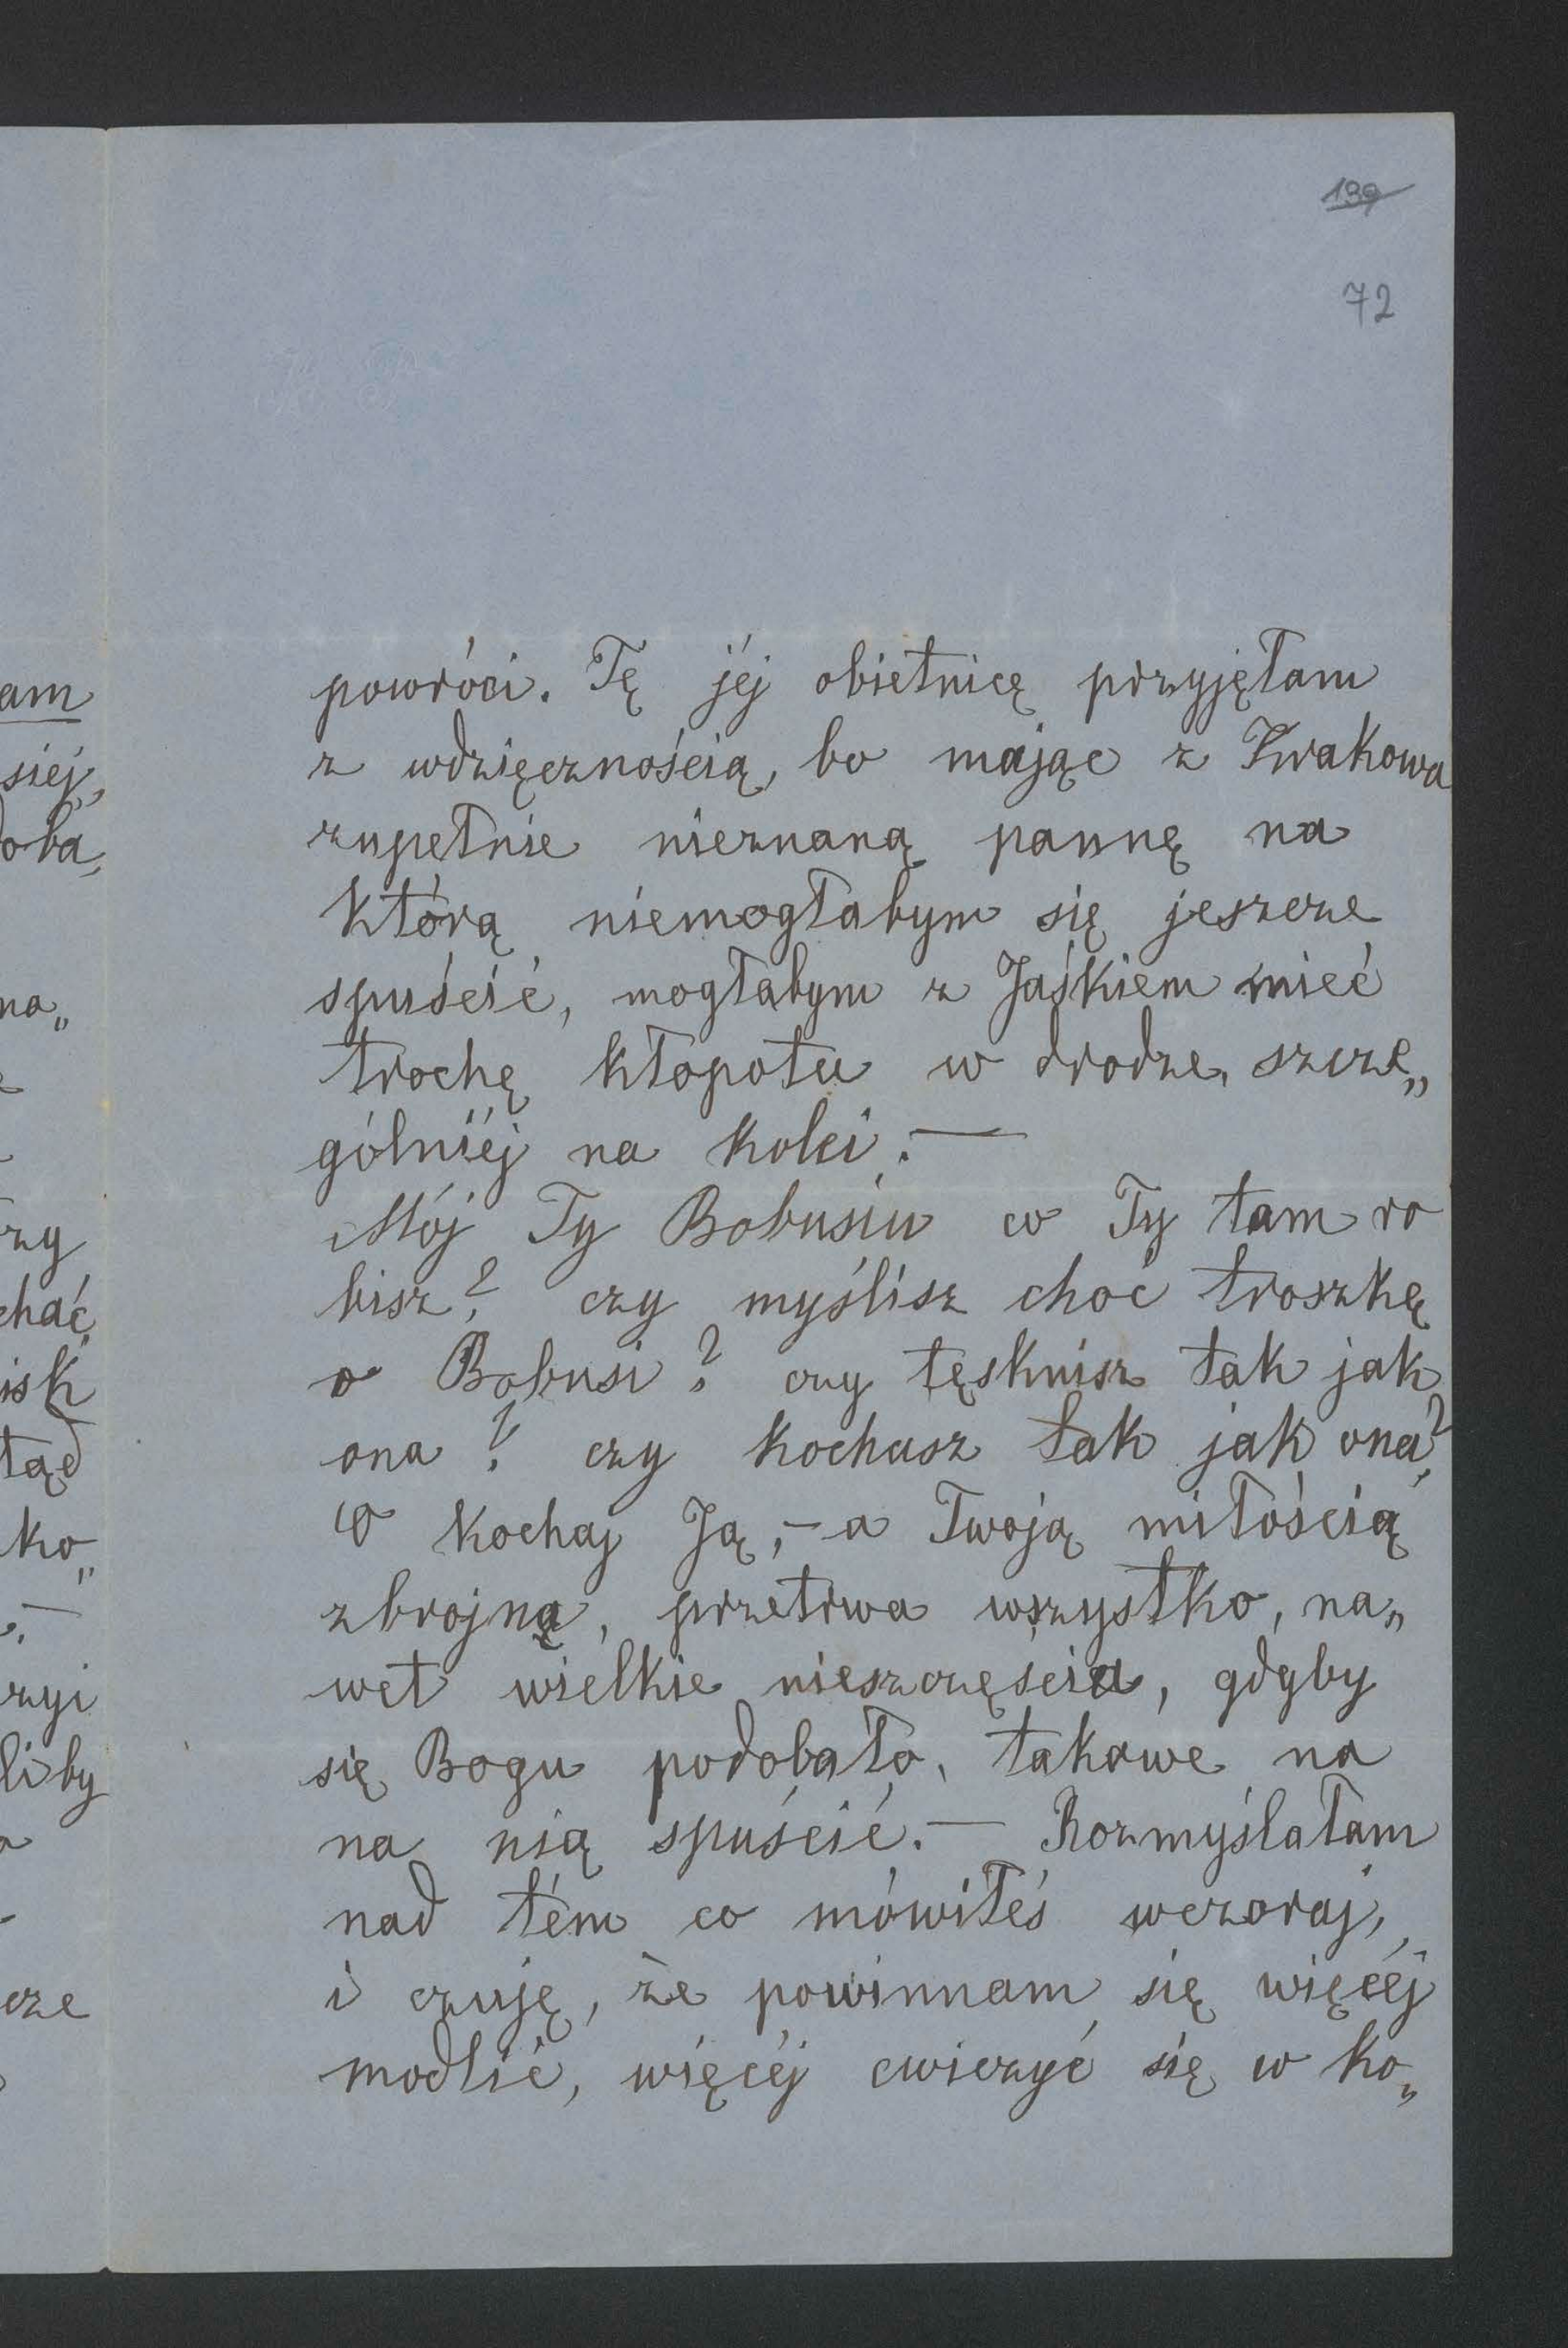 139
72
powróci. Tę jéj obietnicę przyjęłam
z wdzięcznością, bo mając z Krakowa
zupełnie nieznaną pannę na
którą niemogłabym się jeszcze
spuścić, mogłabym z Jaśkiem mieć
trochę kłopotu w drodze, szcze„
gólniéj na kolei. —
Mój Ty Bobusiu co Ty tam ro
bisz? czy myślisz choć troszkę
o Bobusi? czy tęsknisz tak jak
ona? czy kochasz tak jak ona?
O kochaj Ją, – a Twoją miłością
zbrojna, przetrwa wszystko, na„
wet wielkie nieszczęścia, gdyby
się Bogu podobało, takowe na
na nią spuścić. — Rozmyślałam
nad tém co mówiłeś wczoraj,
i czuję, że powinnam się więcéj
modlić, więcéj cwiczyć się w ko„
am
siéj,
oba,
na„
zy
chać,
isk
tąd
ko„
zyi
liby
cze